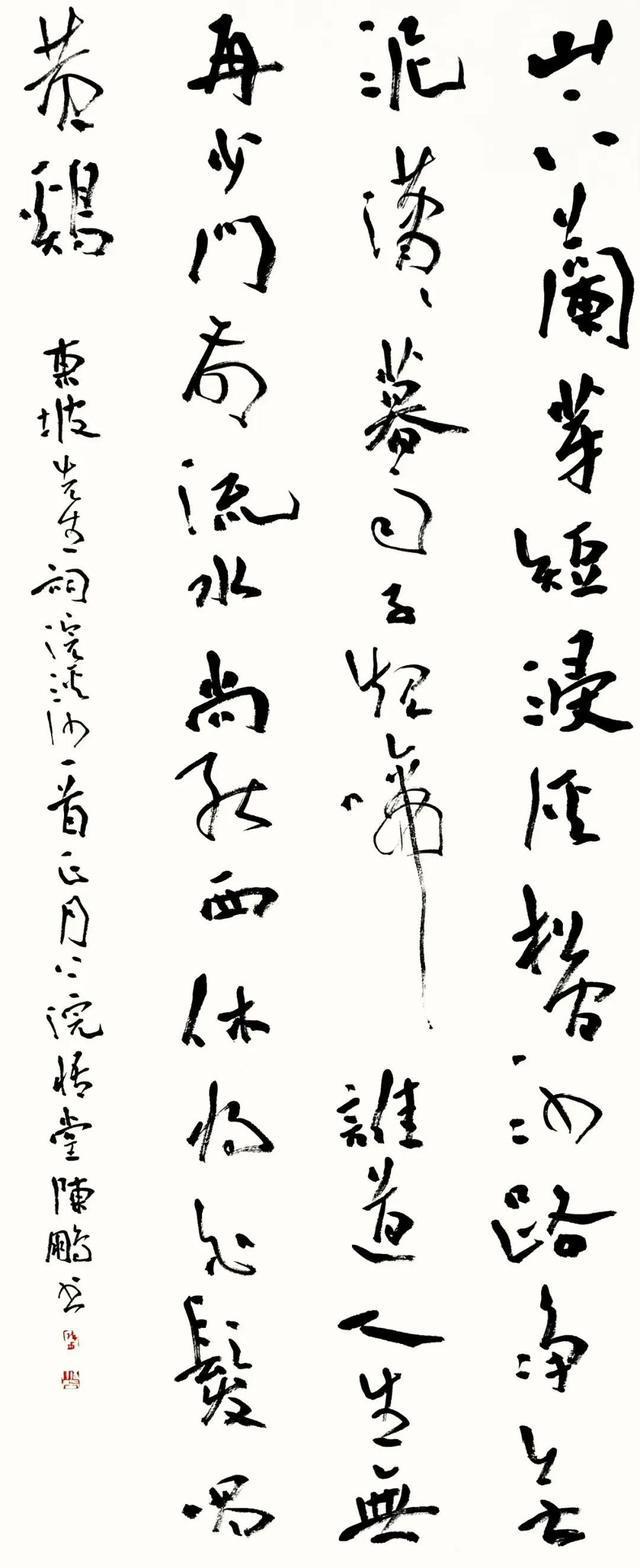 山下蘭芽短浸溪松間沙路淨無
泥瀟〻暮雨子規啼誰道人生無
再少門前流水尚能西休將白髮唱
黃鷄
東坡先生詞浣溪沙一首正月下浣堂陳鵬書